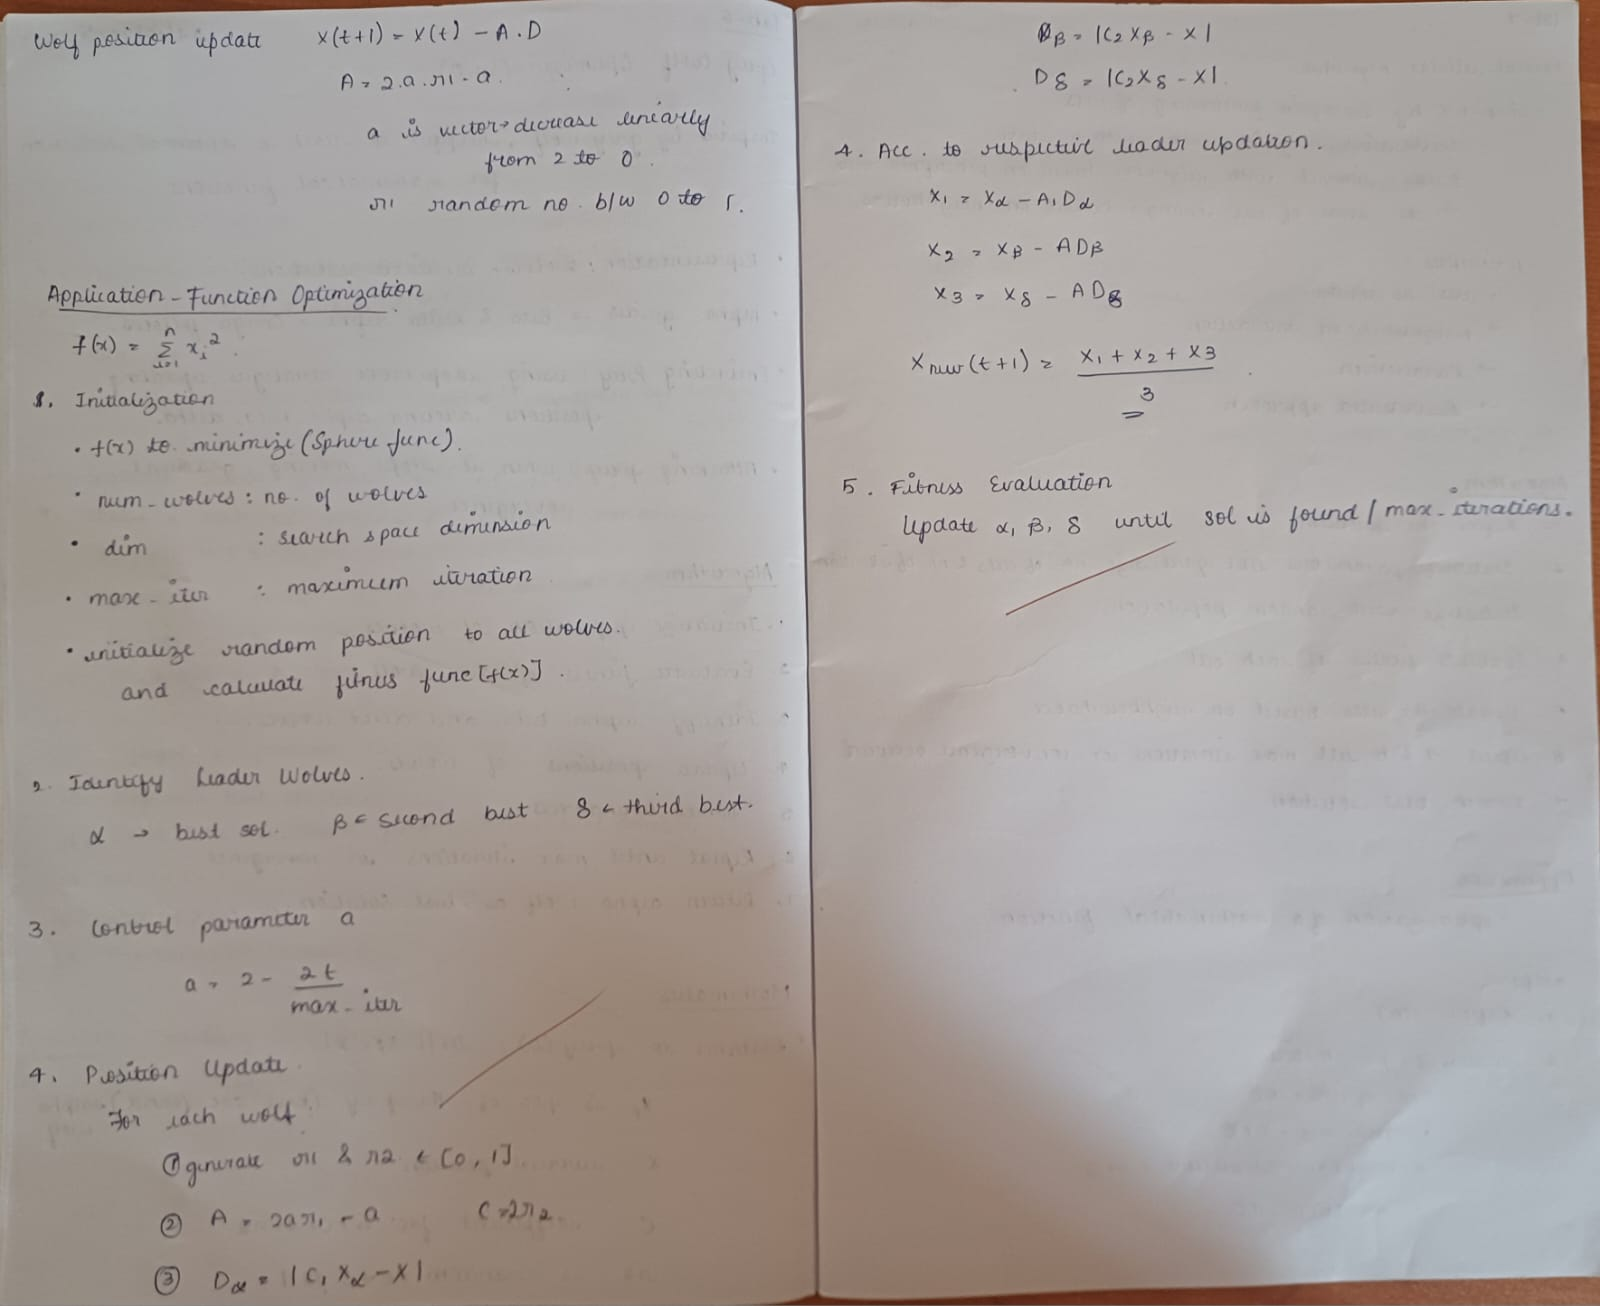 Wolf position update X(t+1) = X(t) - A.D
A = 2.a.r1 - a.
a is vector→decrease linearly
from 2 to 0.
r1 random no. b/w 0 to 1.
Application - Function Optimization
f(x) = n Σ i=1 xi²
1. Initialization
• f(x) to minimize (Sphere func).
• num_wolves : no. of wolves
• dim : search space dimension
• max_iter : maximum iteration
• initialize random position to all wolves.
and calculate fitness func [f(x)].
2. Identify Leader Wolves.
α → best sol. β ← second best δ ← third best.
3. Control parameter a
a = 2 - 2t / max_iter
4. Position Update
For each wolf
① generate r1 & r2 ∈ [0, 1]
② A = 2ar1 - a C = 2r2
③ Dα = |C1 Xα - X|
Dβ = |C2 Xβ - X|
Dδ = |C2 Xδ - X|.
4. Acc. to respective leader updation.
X1 = Xα - A1 Dα
X2 = Xβ - ADβ
X3 = Xδ - ADδ
Xnew(t+1) = X1 + X2 + X3 / 3
5. Fitness Evaluation
Update α, β, δ until sol is found / max_iterations.